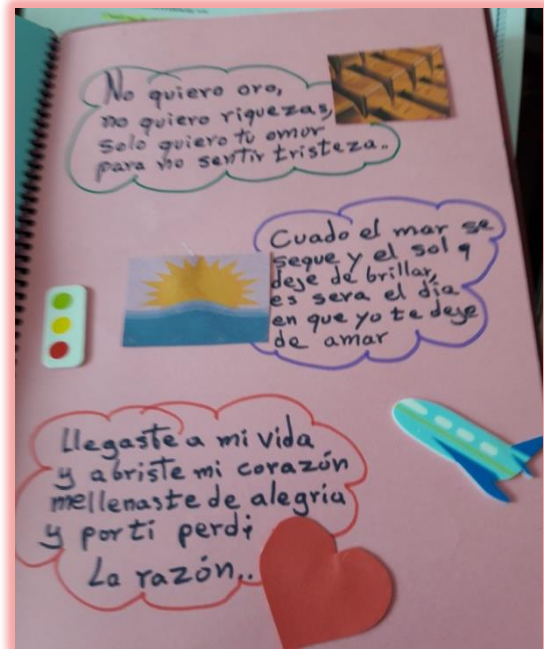 No quiero oro,
no quiero riquezas,
solo quiero tu amor
para no sentir tristeza..
Cuado el mar se
seque y el sol q
deje de brillar,
es sera el día
en que yo te deje
de amar
llegaste a mi vida
y abriste mi corazón
mellenaste de alegria
y por ti perdi
La razón..